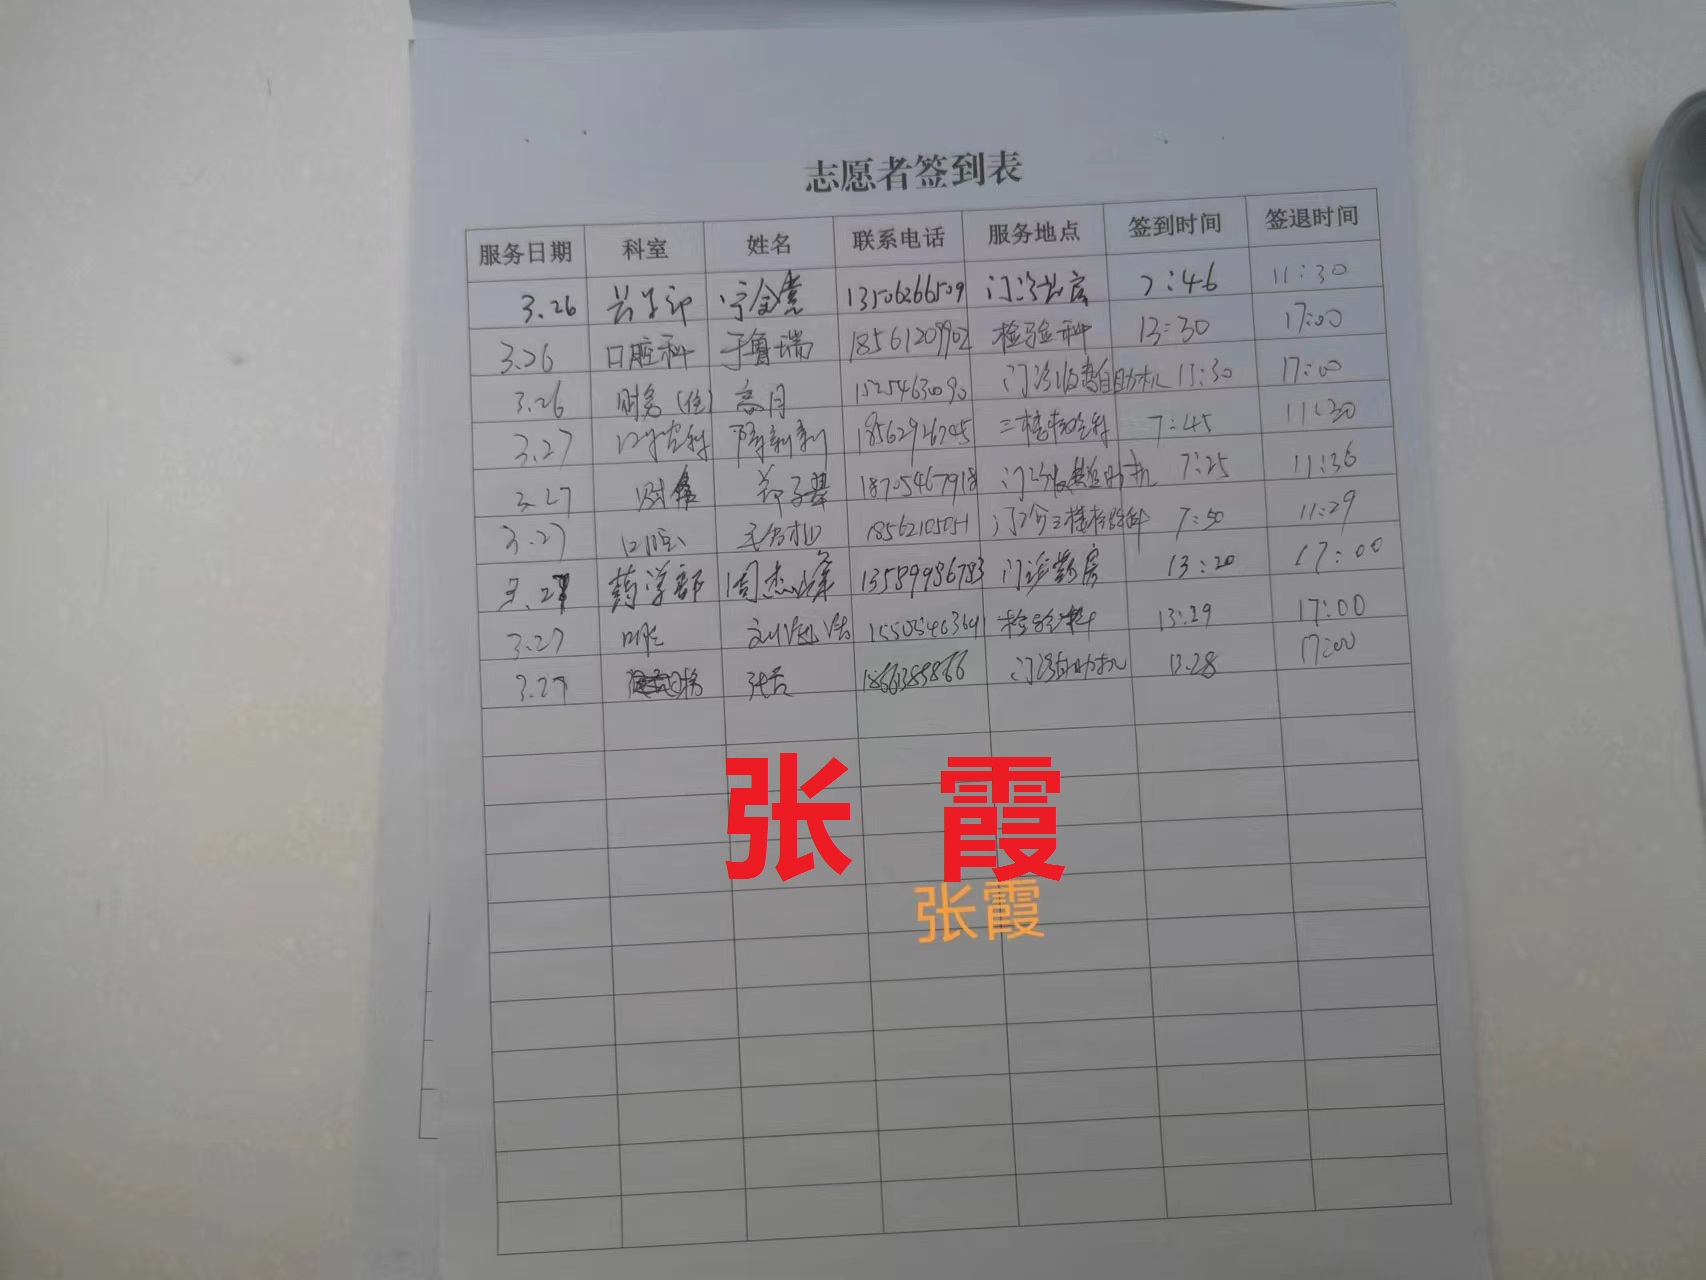 志愿者签到表
服务日期 科室 姓名 联系电话 服务地点 签到时间 签退时间
3.26 药学部 宁金亮 13506266509 门诊药房 7:46 11:30
3.26 口腔科 于鲁瑞 18561209902 检验科 13:30 17:00
3.26 财务(住) 高月 15254630090 门诊收费自助机 13:30 17:00
3.27 口腔科 18562926745 三楼检验科 7:45 11:30
3.27 财务 18705467918 7:25 11:36
3.27 口腔 18562105051 门诊三楼检验科 7:50 11:29
3.27 药学部 周杰峰 13589986783 门诊药房 13:20 17:00
3.27 口腔 15505463641 检验科 13:29 17:00
3.27 门诊自助机 13.28 17:00
张 霞
张霞